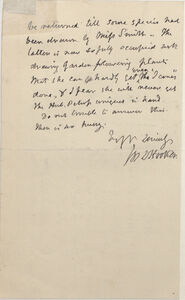 be returned till some species had
been drawn by Miss Smith — The
latter is now so fully occupied with
drawing Garden flowering plants
that she can hardly get the "Icones"
done, & I fear she will never get
the
in hand.
Do not trouble to answer this.
There is no hurry.
Jos D Hooker